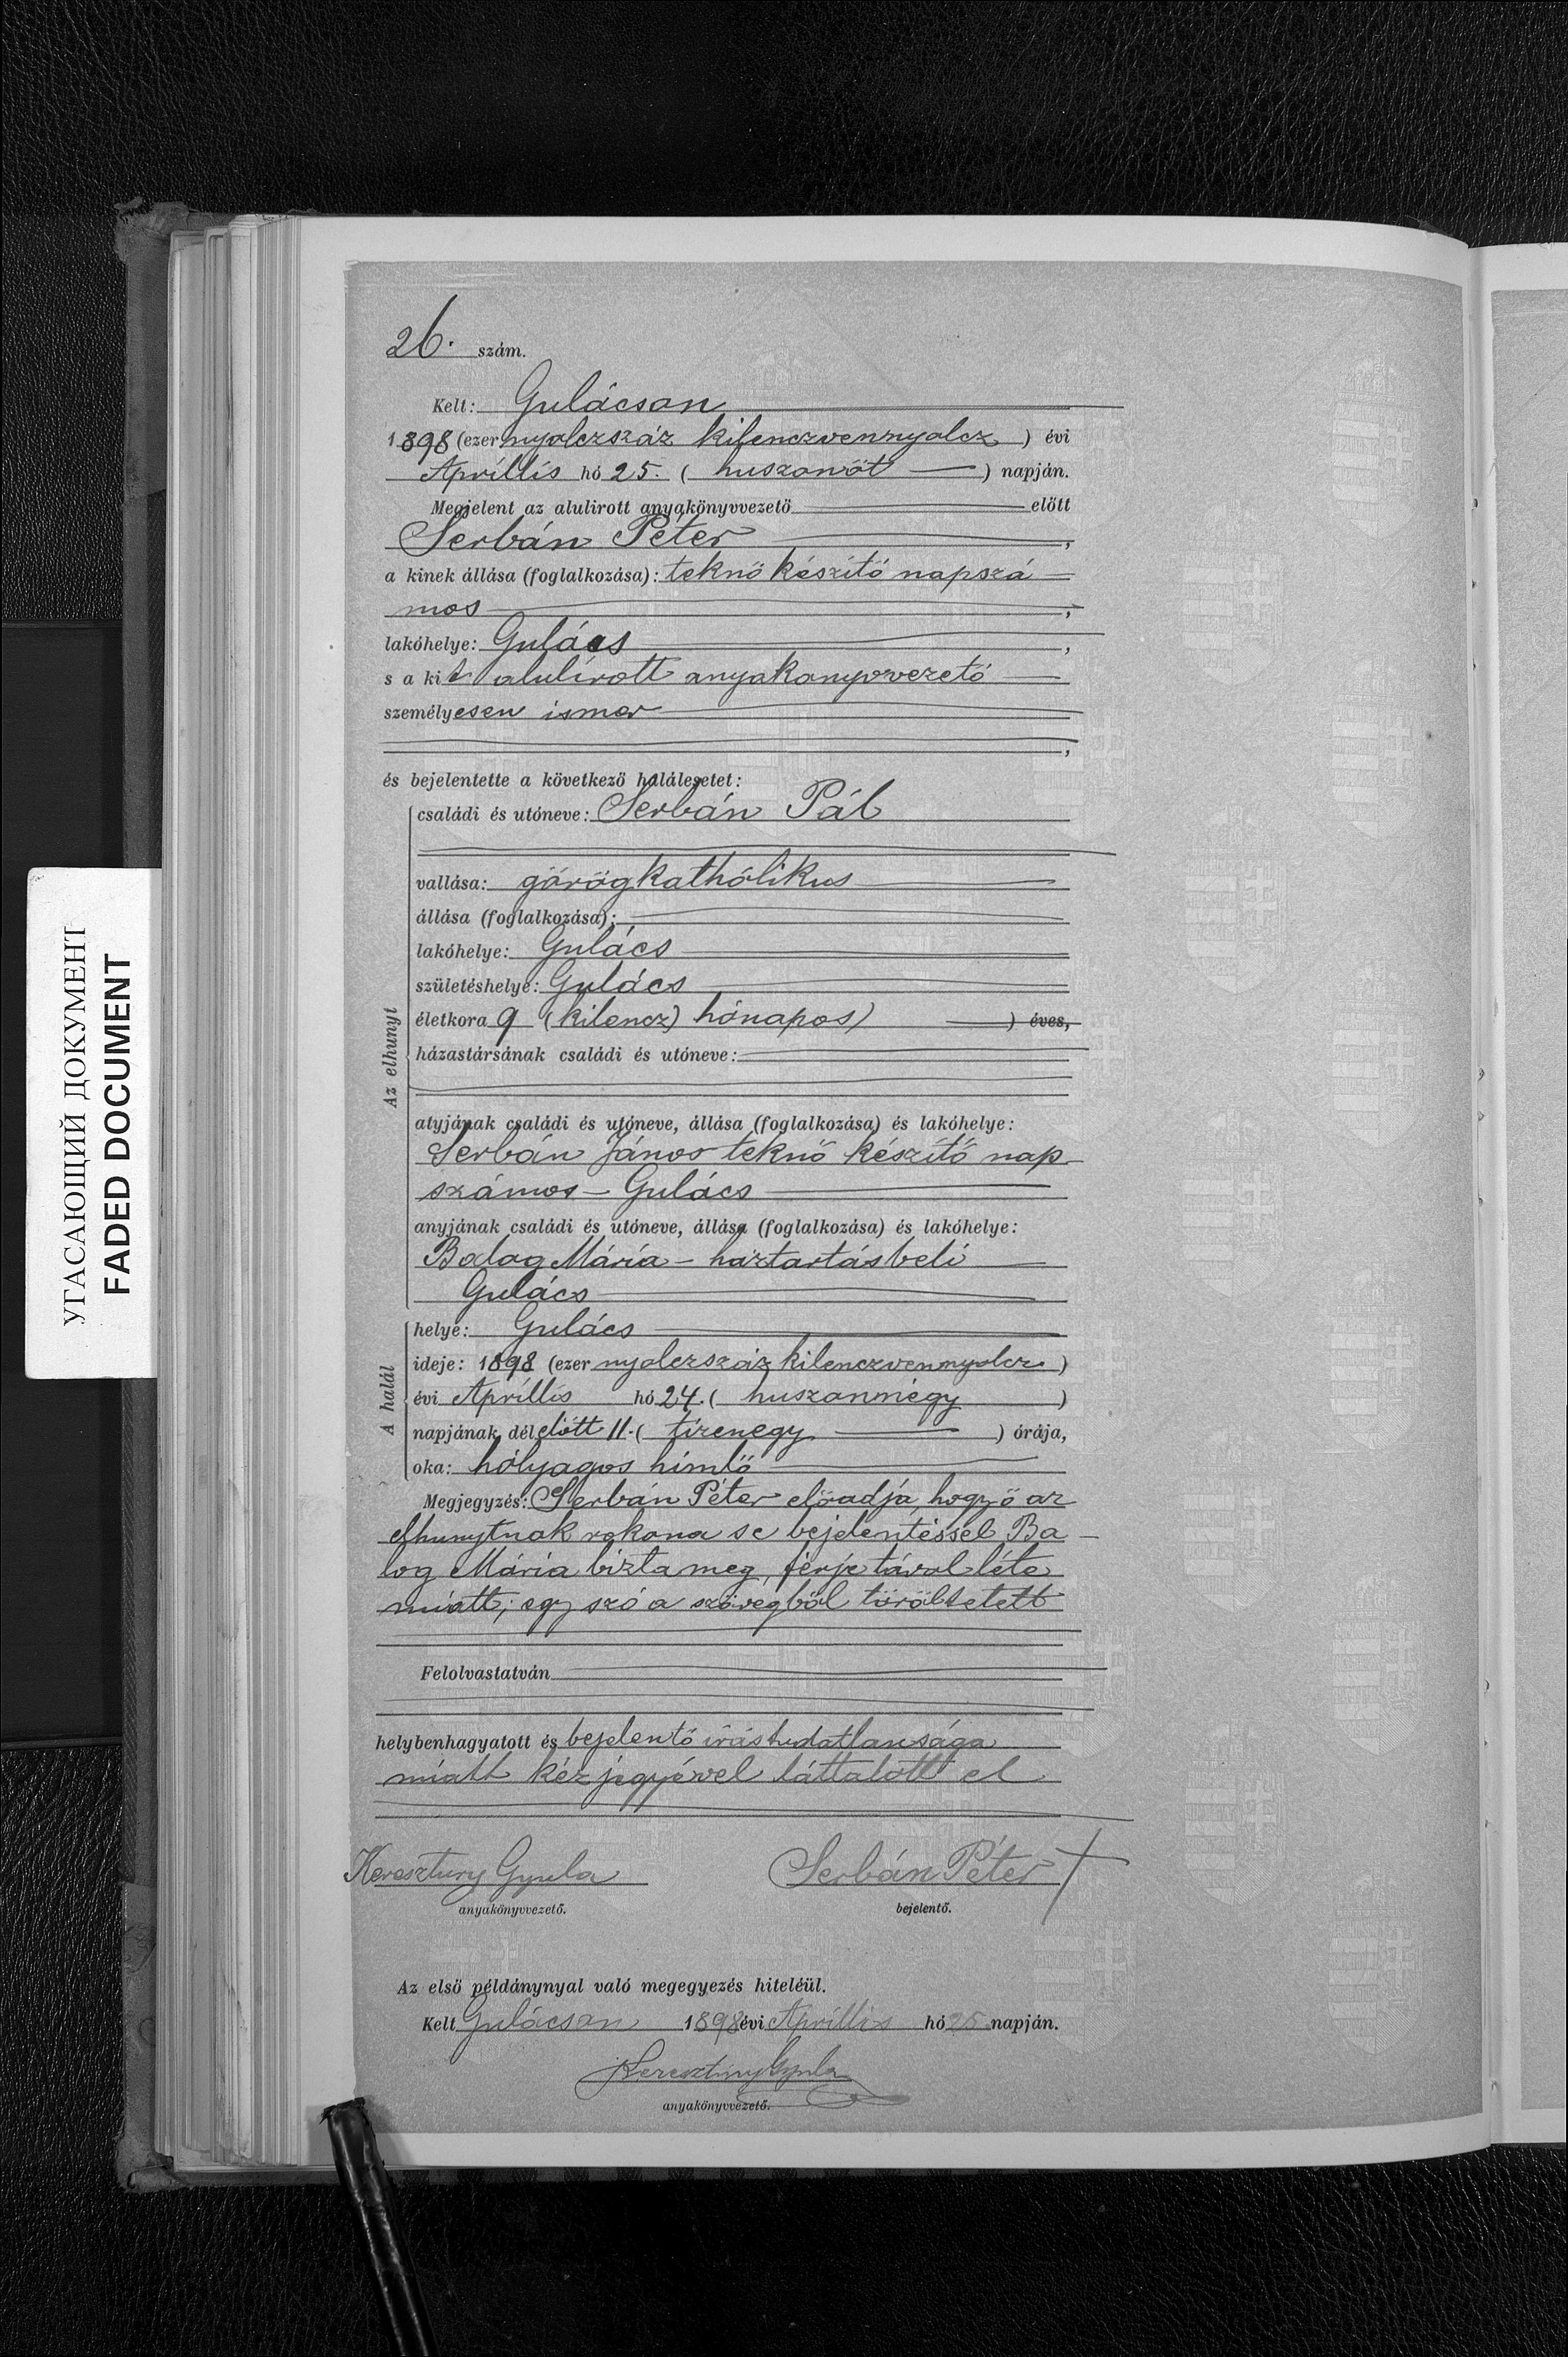 26. szám.
Kelt: Gulácson
1898 (ezer nyolczszáz kilenczvennyolcz) évi
Aprillis hó 25. (huszonöt) napján.
Megjelent az alulirott anyakönyvvezető előtt
Serbán Péter,
a kinek állása (foglalkozása): teknő készitő napszá
mos,
lakóhelye: Gulács,
s a kit alulírott anyakönyvvezető
személyesen ismer
,
és bejelentette a következő halálesetet:
Az elhunyt
családi és utóneve: Serbán Pál
vallása: görögkathólikus
állása (foglalkozása):
lakóhelye: Gulács
születéshelye: Gulács
életkora 9 (kilencz) hónapos) ) éves,
házastársának családi és utóneve:
atyjának családi és utóneve, állása (foglalkozása) és lakóhelye:
Serbán János teknő készítő nap
számos – Gulács
anyjának családi és utóneve, állása (foglalkozása) és lakóhelye:
Balog Mária – háztartásbeli
Gulács
A halál
helye: Gulács
ideje: 1898 (ezer nyolczszáz kilenczvennyolcz)
évi Aprillis hó 24. (huszonnégy)
napjának délelőtt 11. (tizenegy) órája,
oka: hólyagos himlő
Megjegyzés: Serbán Péter előadja, hogy ő az
elhunytnak rokona s e bejelentéssel Ba-
log Mária bizta meg, férje távol léte
miatt; egy szó a szövegből töröltetett
Felolvastatván
helybenhagyatott és bejelentő írástudatlansága
miatt kézjegyével láttatott el
Keresztury Gyula Serbán Péter +
anyakönyvvezető. bejelentő.
Az első példánynyal való megegyezés hiteléül.
Kelt Gulácson 1898 évi Aprillis hó 25 napján.
Keresztury Gyula
anyakönyvvezető.
УГАСАЮЩИЙ ДОКУМЕНТ
FADED DOCUMENT